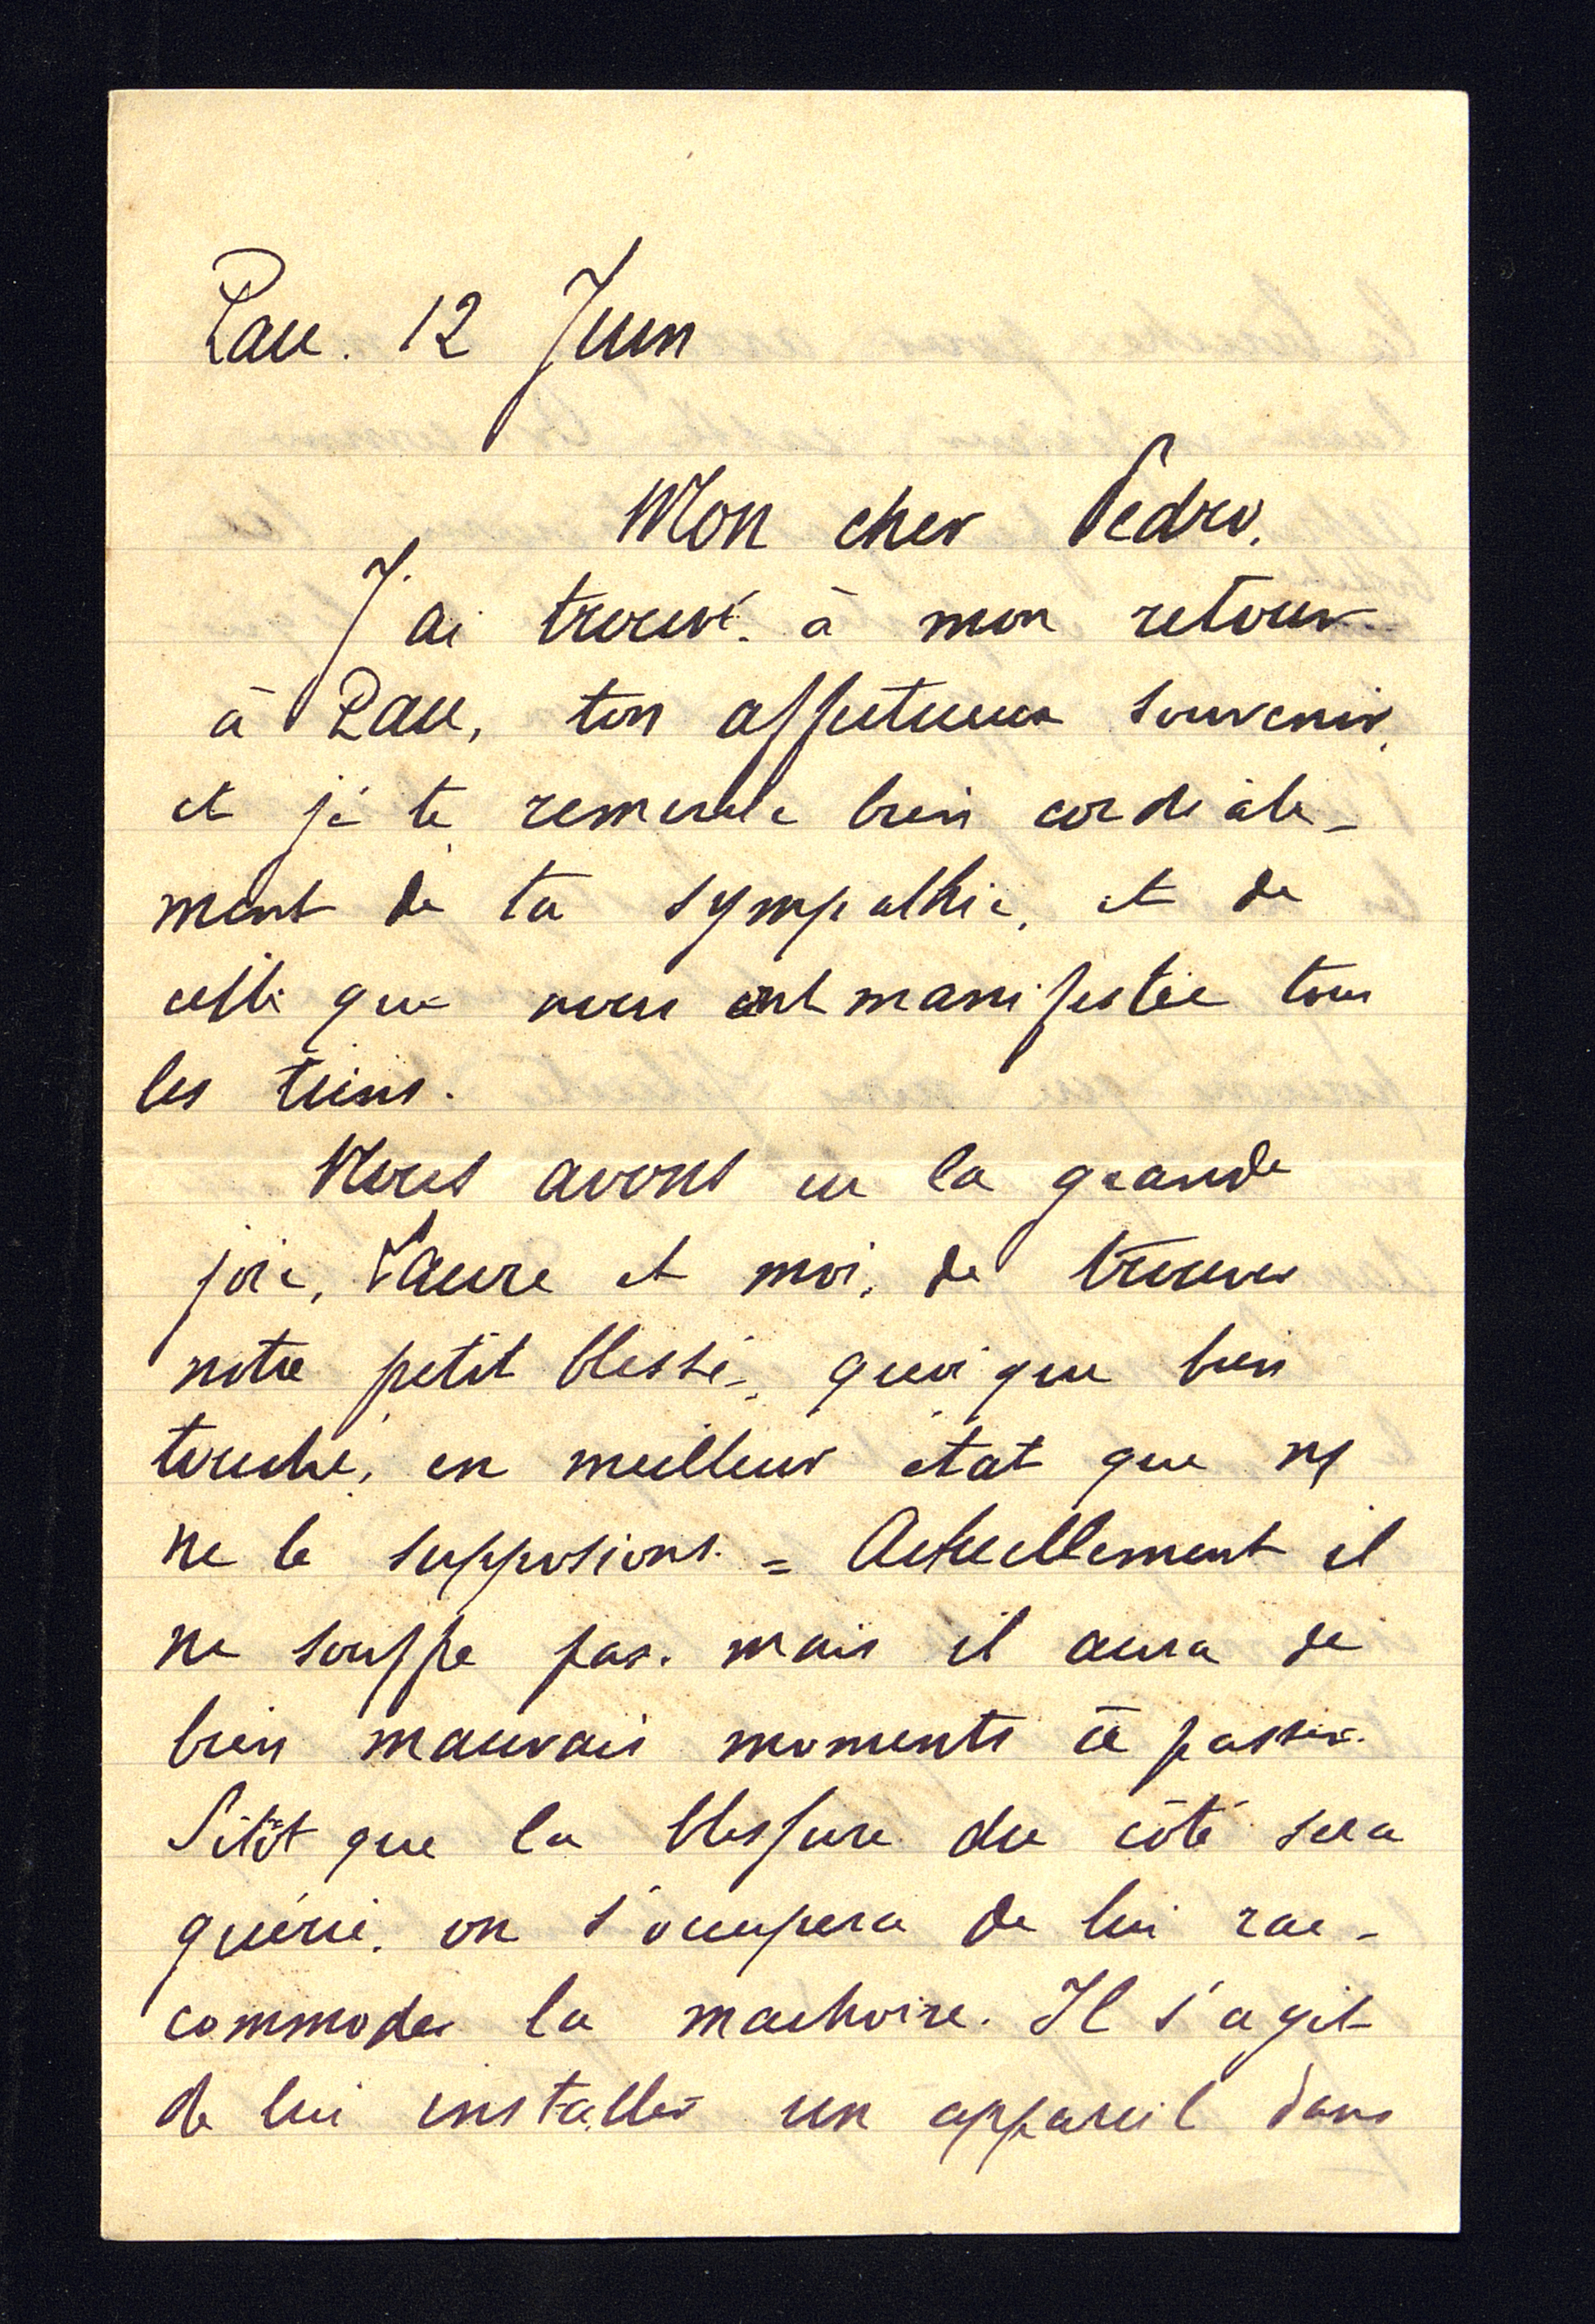 Pau. 12 Juin
Mon cher Pedro,
J'ai trouvé, à mon retour
à Pau, ton affectueux souvenir,
et je te remercie bien cordiale-
ment de ta sympathie, et de
celle que nous ont manifestée tous
les tiens.
Nous avons eu la grande
joie, Laure et moi, de trouver
notre petit blessé, quoique bien
touché, en meilleur état que ns
ne le supposions. = Actuellement il
ne souffre pas. mais il aura de
bien mauvais moments à passer.
Sitôt que la blessure du côté sera
guérie, on s'occupera de lui rac-
commoder la machoire. Il s'agit
de lui installer un appareil dans